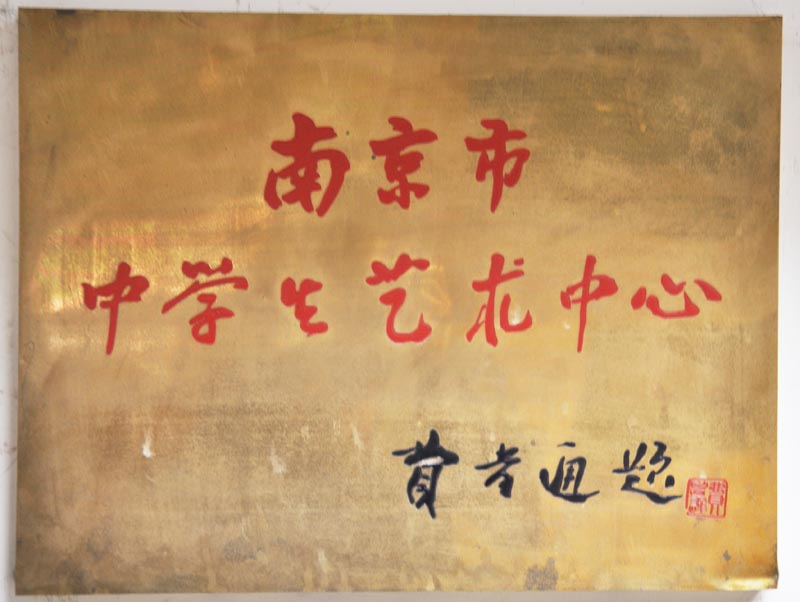 南京市
中学生艺术中心
费孝通题